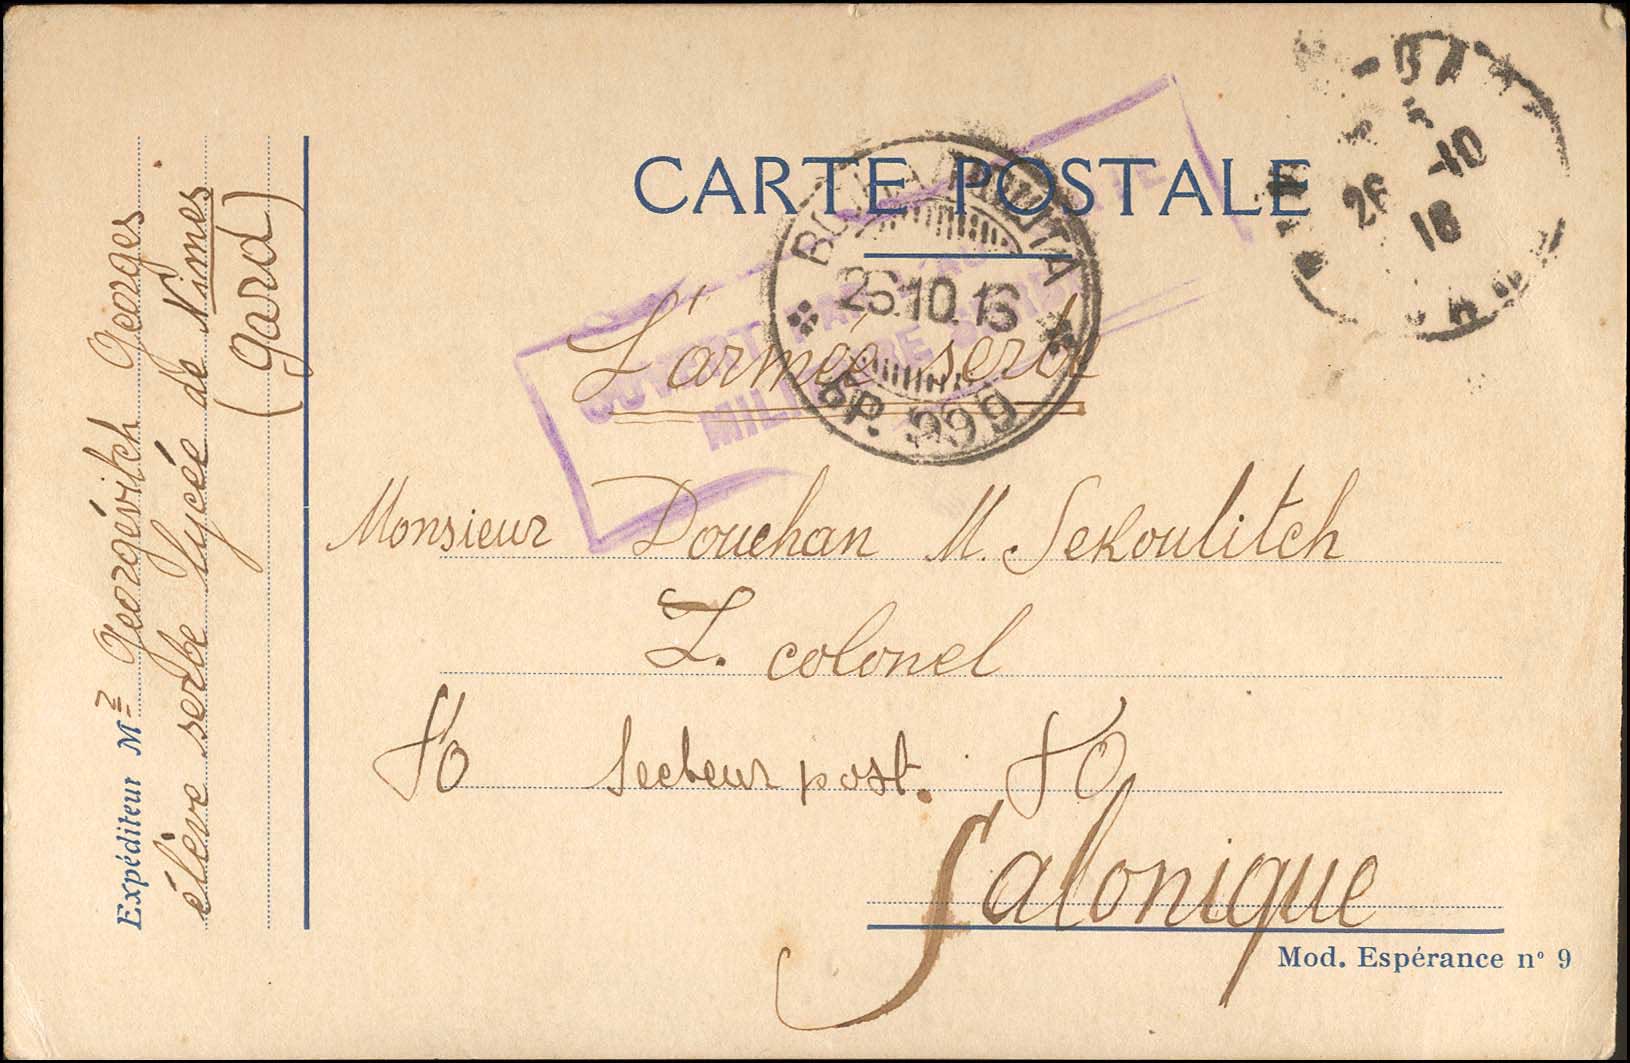 CARTE POSTALE
26 -10
16
26.10.16
БР. 999
OUVERT PAR
MILITAIRE
L'armée serbe
Monsieur Douchan M. Sekoulitch
L. colonel
Secteur post.
Salonique
Mod. Espérance nº 9
Expéditeur Mr Georgévitch Georges
élève serbe lycée de Nimes
(Gard)